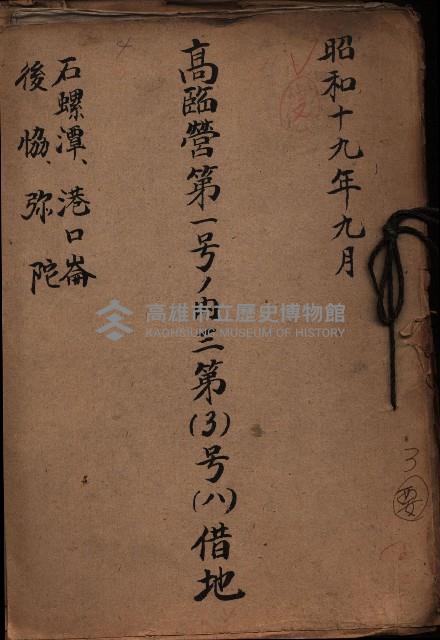 昭和十九年九月
高臨營第一号ノ内三第(3)号(八)借地
石螺潭、港口崙
後協、弥陀
高雄市立歷史博物館
KAOHSIUNG MUSEUM OF HISTORY
3
要